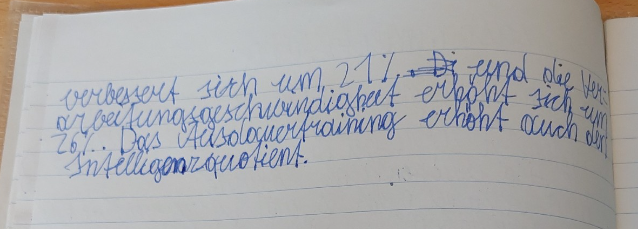 verbessert sich um 21%. und die Ver-
arbeitungsgeschwindigkeit erhöht sich um
26%. Das training erhöht auch den
Intelligenzquotient.